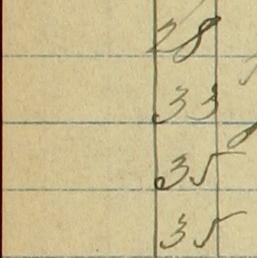 28
33
35
35